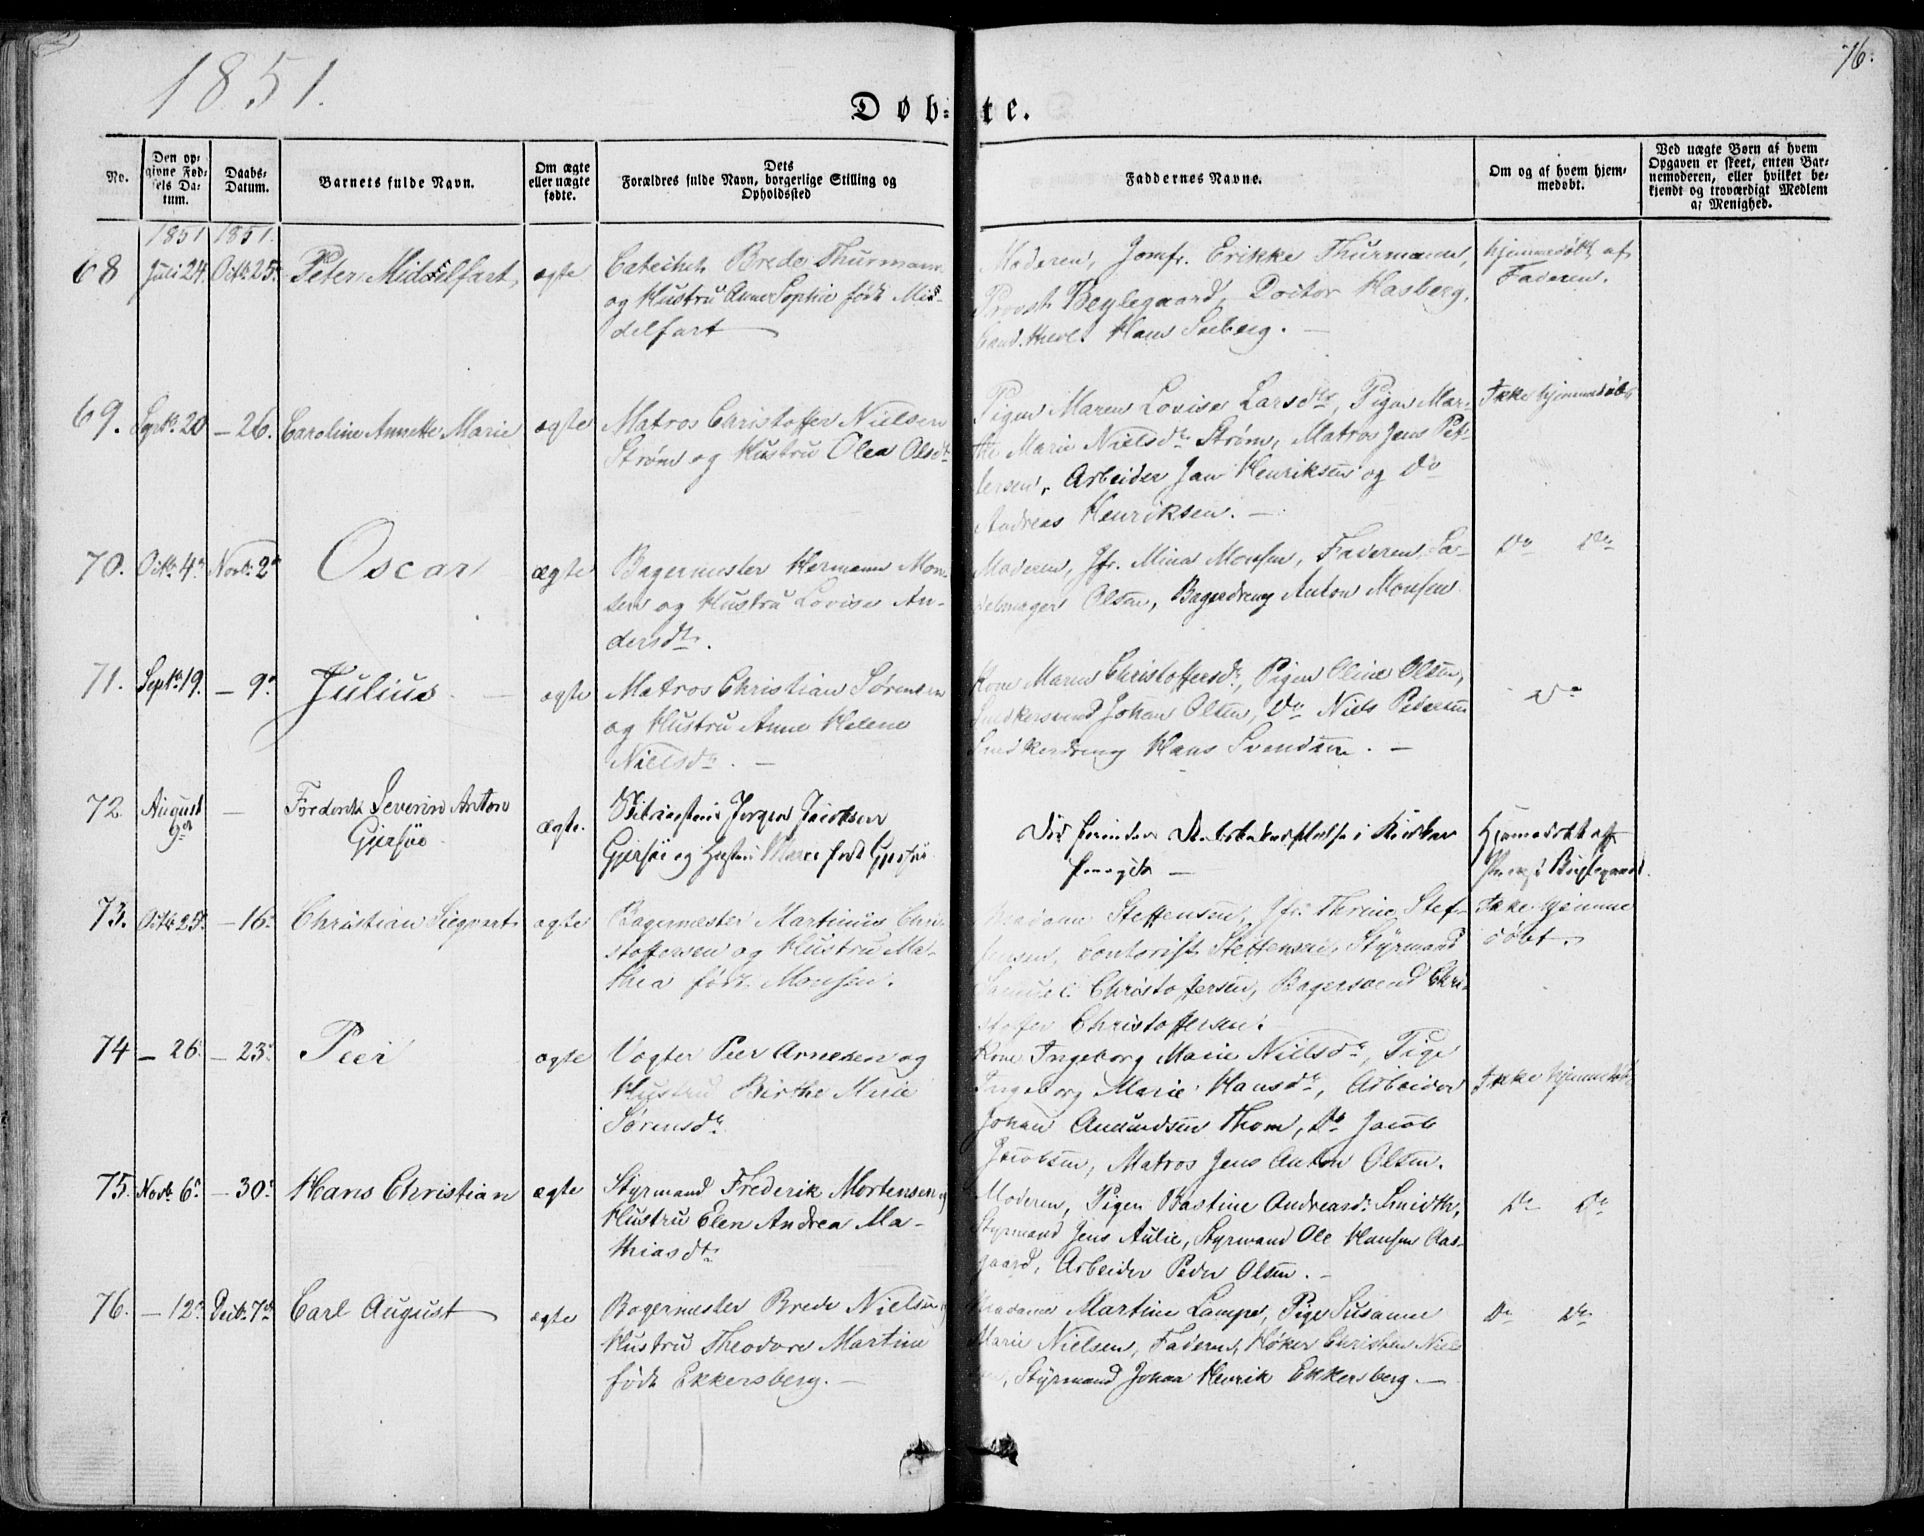 1851.
76.
Døb-te.
No.
Den op-
givne Fød-
sels Da-
tum.
Daabs-
Datum.
Barnets fulde Navn.
Om ægte
eller uægte
fødte.
Dets
Forældres fulde Navn, borgerlige Stilling og
Opholdssted
Faddernes Navne.
Om og af hvem hjem-
medøbt.
Ved uægte Børn af hvem
Opgaven er skeet, enten Bar-
nemoderen, eller hvilket be-
kjendt og troværdigt Medlem
af Menighed.
1851 1851.
68 Juli 24. Octb. 25. Peter Middelfart, ægte
Catechet Brede Thurmann
og Hustru Anne Sophie født Mid-
delfart
Moderen, Jomfr. Erikke Thurmann,
Provst Beylegaard, Doctor Hasberg,
Cand. theol. Hans Seeberg. —
hjemmedøbt af
Faderen.
69. Sept. 20 — 26. Caroline Annette Marie ægte
Matros Christoffer Nielsen
Strøm og Hustru Olea Olsdt.
Pigen Maren Lovise Larsdtr, Pigen Mar-
the Marie Nielsdtr Strøm, Matros Jens Pet-
tersen, Arbeider Jan Henriksen og Do
Andreas Henriksen. —
Ikke hjemmedøbt
70. Octb. 4de Novb. 2den Oscar ægte
Bagermester Hermann Mon-
sen og Hustru Lovise An-
dersdtr.
Moderen, Jfr. Mina Monsen, Faderen, Sa-
delmager Olsen, Bagerdreng Anton Monsen.
Do Do
71. Septb. 19. — 9de Julius — ægte
Matros Christian Sørensen
og Hustru Anne Helene
Nielsdtr. —
Kone Maren Christoffersdtr, Pigen Oline Olsen,
Snedkersvend Johan Olsen, Do Niels Pedersen
Snedkerdreng Hans Svendsen. —
Do
72. August
9de — Frederik Severin Anton
Gjersøe ægte.
Jørgen Jacobsen
Gjersøe og Hustru Maren født Gjersøe
i Kirken
—
Hjemmedøbt af
Provst Beylegaard.
73. Octb. 25. — 16. Christian Siegvart ægte
Bagermester Martinus Chri-
stoffersen og Hustru Ma-
thea født Monsen.
Madame Steffensen, Jfr. Thrine Stef-
fensen, Contorist Steffensen, Styrmand
Samuel Christoffersen, Bagersvend Chri-
stoffer Christoffersen.
Ikke hjemme
døbt.
74 — 26. — 23. Peer ægte
Vogter Peer Arnesen og
Hustru Birthe Marie
Sørensdtr.
Kone Ingeborg Marie Nielsdtr, Pige
Ingeborg Marie Hansdtr, Arbeider
Johan Amundsen Thom, Do Jacob
Jacobsen, Matros Jens Anton Olsen.
Ikke hjemmedøbt
75. Novb. 6. — 30. Hans Christian ægte
Styrmand Frederik Mortensen og
Hustru Elen Andrea Ma-
thiasdtr.
Moderen, Pigen Bastine Andreasdr. Smidth,
Styrmand Jens Aulie, Styrmand Ole Hansen Aas-
gaard, Arbeider Peder Olsen. —
Do Do
76. — 12. Decb. 7de Carl August ægte
Bagermester Brede Nielsen,
Hustru Theodore Martine
født Ekkersberg. —
Madame Martine Lampe, Pige Susanne
Marie Nielsen, Faderen, Høker Christen Niel-
sen, Styrmand Johan Henrik Ekkersberg. —
Do Do